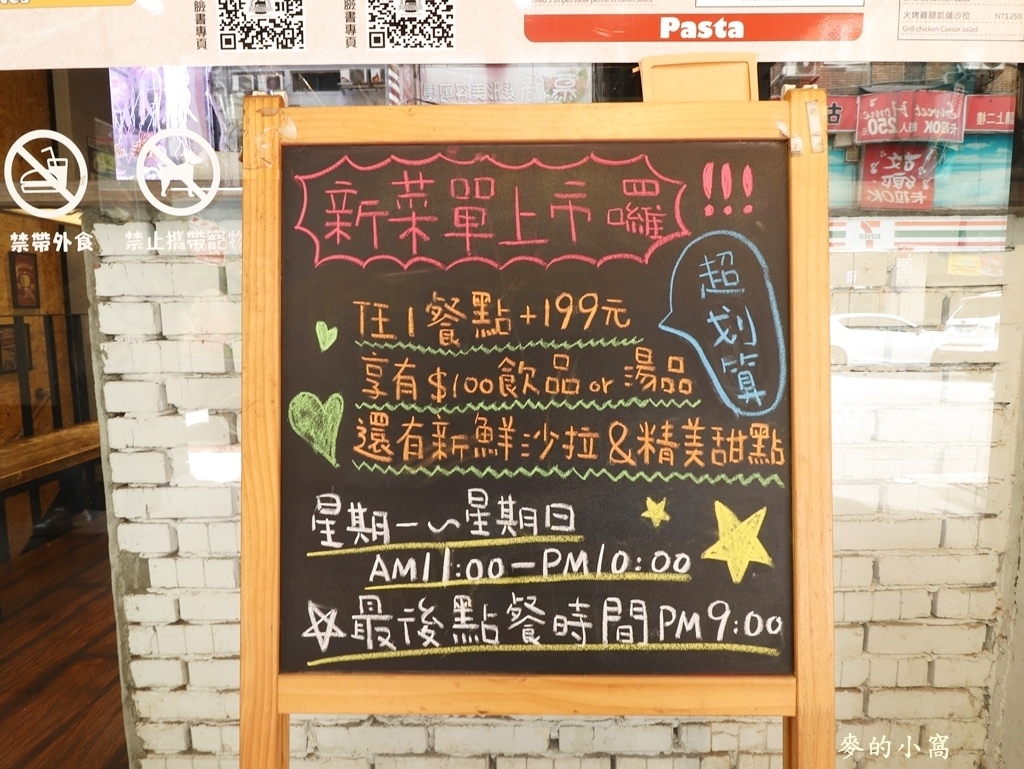 臉書專頁
臉書專頁
Pasta
火烤雞腿凱薩沙拉 NT$250
Grill chicken Caesar salad
禁帶外食
禁止攜帶寵物
新菜單上市囉!!!
超划算
任1餐點+199元
享有$100飲品or湯品
還有新鮮沙拉&精美甜點
星期一~星期日
AM11:00-PM10:00
最後點餐時間PM9:00
麥的小窩